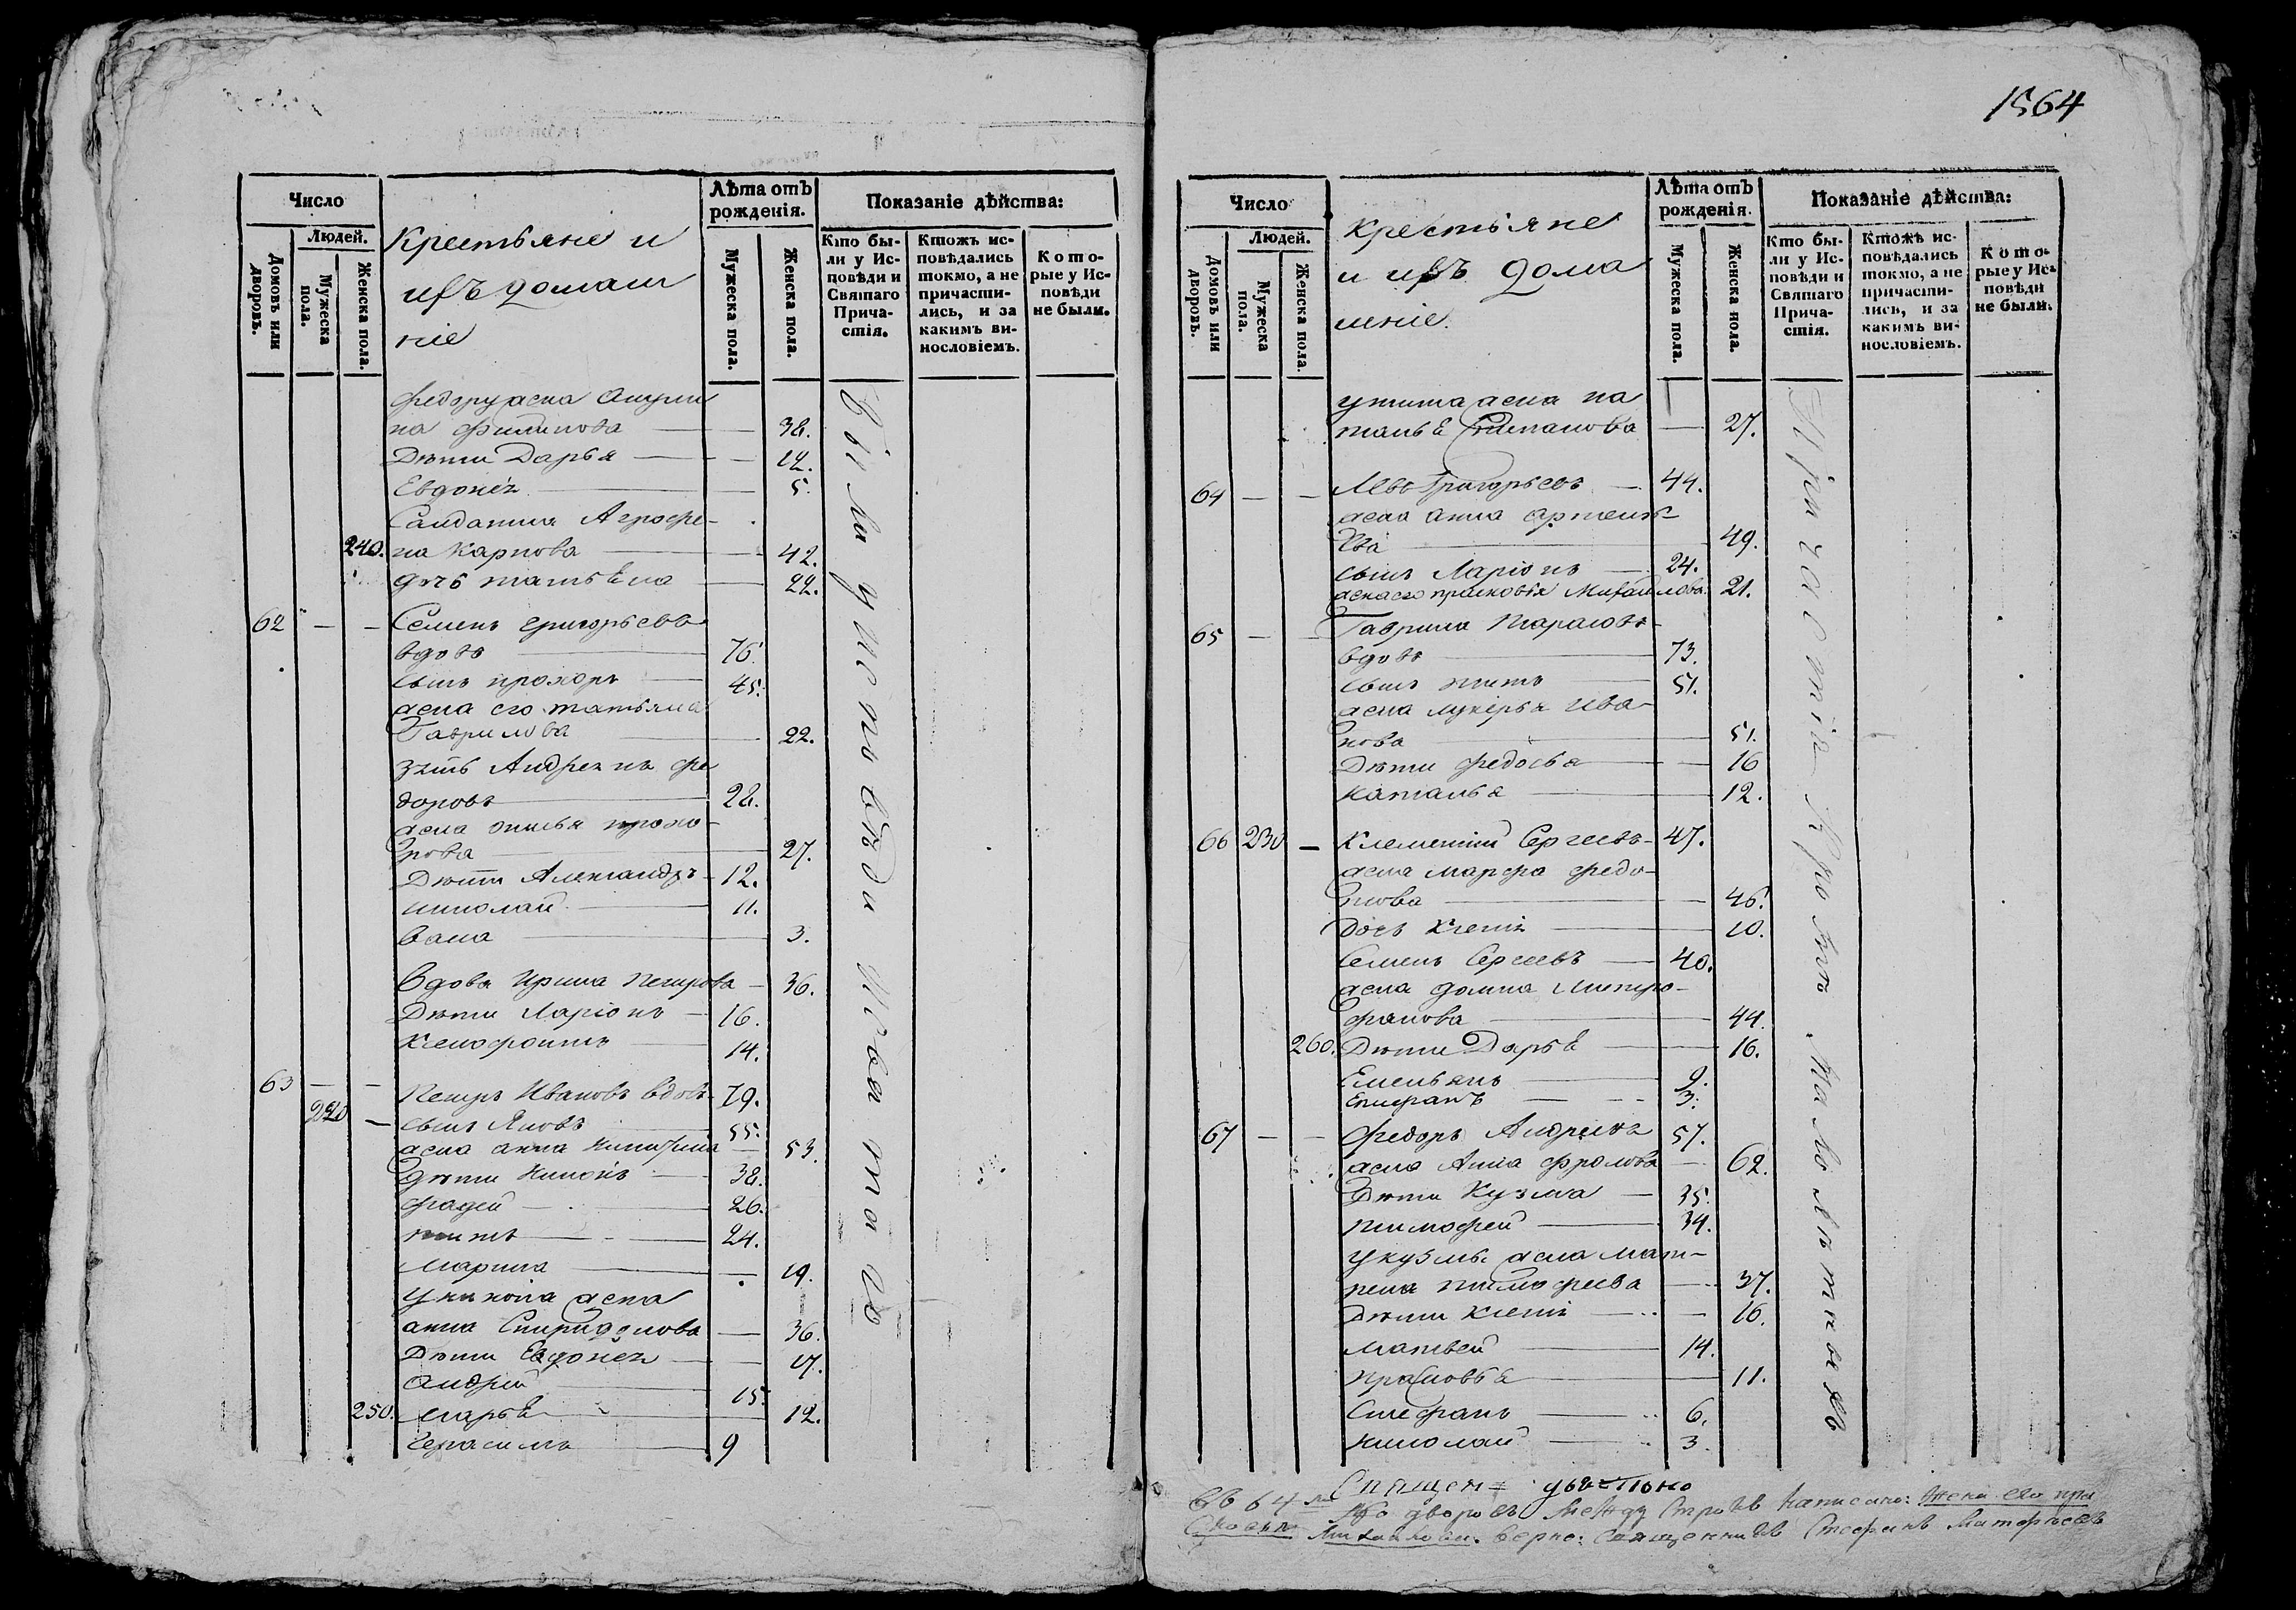 Число
Людей.
Домовъ или дворовъ.
Мужеска пола.
Женска пола.
Крестьяне и
ихъ домаш
ніе
Лѣта отъ рожденія.
Мужеска пола.
Женска пола.
Показаніе дѣйства:
Кто бы-
ли у Ис-
повѣди и
Святаго
Прича-
стія.
Ктожъ ис-
повѣдались
токмо, а не
причасти-
лись, и за
какимъ ви-
нословіемъ.
Кото-
рые у Ис-
повѣди
не были.
федору жена Акули
на филипова 38.
Дѣти Дарья 14.
Евдокія 5.
Салдатка Агрофе-
240. на Карпова 42.
дчь татьяна 22.
62 — — Семенъ григорьевъ
вдовъ 76.
сынъ прохоръ 45.
жена его татьяна
Гаврилова 22.
зять Андреянъ фе
доровъ 28.
жена прохо-
рова 27.
Дѣти Александръ 12.
николай 11.
васа 3.
Вдова Ирина Петрова 36.
Дѣти Ларіонъ 16.
Ксенофонтъ 14.
63 — — Петръ Ивановъ вдовъ 79.
240 — сынъ Яковъ 55.
жена анна никитина 53.
Дѣти Никонъ 38.
фадей 26.
титъ 24.
Марина 19.
У никона жена
анна Спиридонова 36.
Дѣти Евдокея 17.
Андрей 15.
250. марья 12.
Герасимъ 9
были у исповѣди и святаго
1564
Число
Людей.
Домовъ или дворовъ.
Мужеска пола.
Женска пола.
Крестьяне
и ихъ дома
шніе.
Лѣта отъ рожденія.
Мужеска пола.
Женска пола.
Показаніе дѣйства:
Кто бы-
ли у Ис-
повѣди и
Святаго
Прича-
стія.
Ктожъ ис-
повѣдались
токмо, а не
причасти-
лись, и за
какимъ ви-
нословіемъ.
Кото-
рые у Ис-
повѣди
не были.
у тита жена на
талья Степанова 27.
64 — — Левъ Григорьевъ 44.
жена анна артемь-
ева 49.
сынъ Ларіонъ 24.
жена его прасковія Михайлова 21.
65 — — Гаврила Тарасовъ
вдовъ 73.
сынъ титъ 51.
жена лукерья ива-
нова 51.
Дѣти федосья 16
наталья 12.
66 230 — Клементій Сергеевъ 47.
жена марфа федо-
това 46.
дочь Ксенія 10.
Семенъ Сергеевъ 40.
жена домна митро-
фанова 44.
260. Дѣти Дарья 16.
Емельянъ 9.
Епифанъ 3.
67 — — Федоръ Андреевъ 57.
жена Анна фролова 62.
Дѣти Кузма 35.
тимофей 34.
у кузмы жена мат-
рена тимофеева 37.
Дѣти Ксенія 16.
матвей 14.
прасковья 11.
Стефанъ 6.
николай 3.
Причастія кромѣ малолѣтныхъ
Въ 64 мъ дворѣ между строкъ написано: жена его пра
сковья Михайлова. Верно: Священникъ Стефанъ